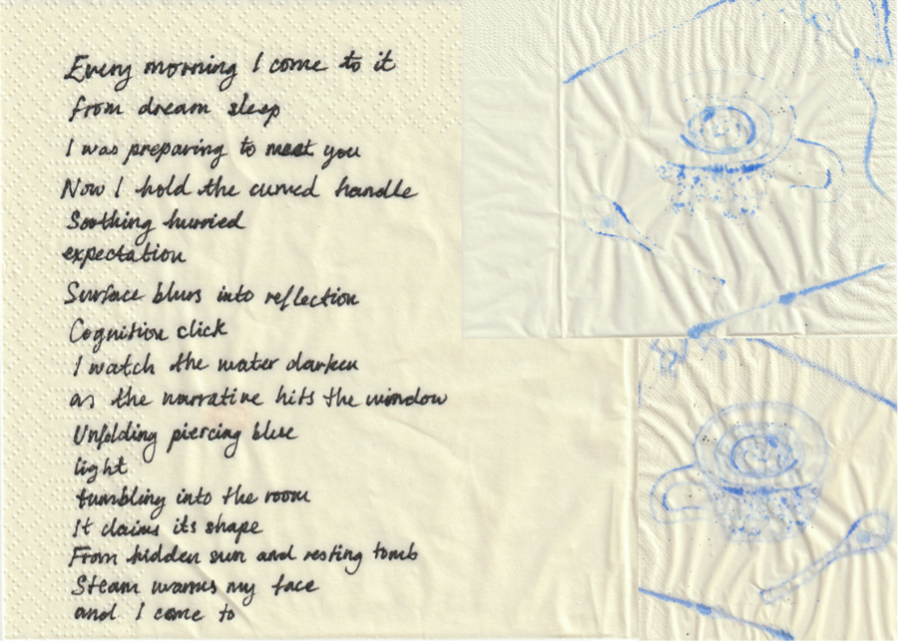 Every morning I come to it
from dream sleep
I was preparing to meet you
Now I hold the curved handle
Soothing hurried
expectation
Surface blurs into reflection
Cognition click
I watch the water darken
as the narrative hits the window
Unfolding piercing blue
light
tumbling into the room
It claims its shape
From hidden sun and resting tomb
Steam warms my face
and I come to